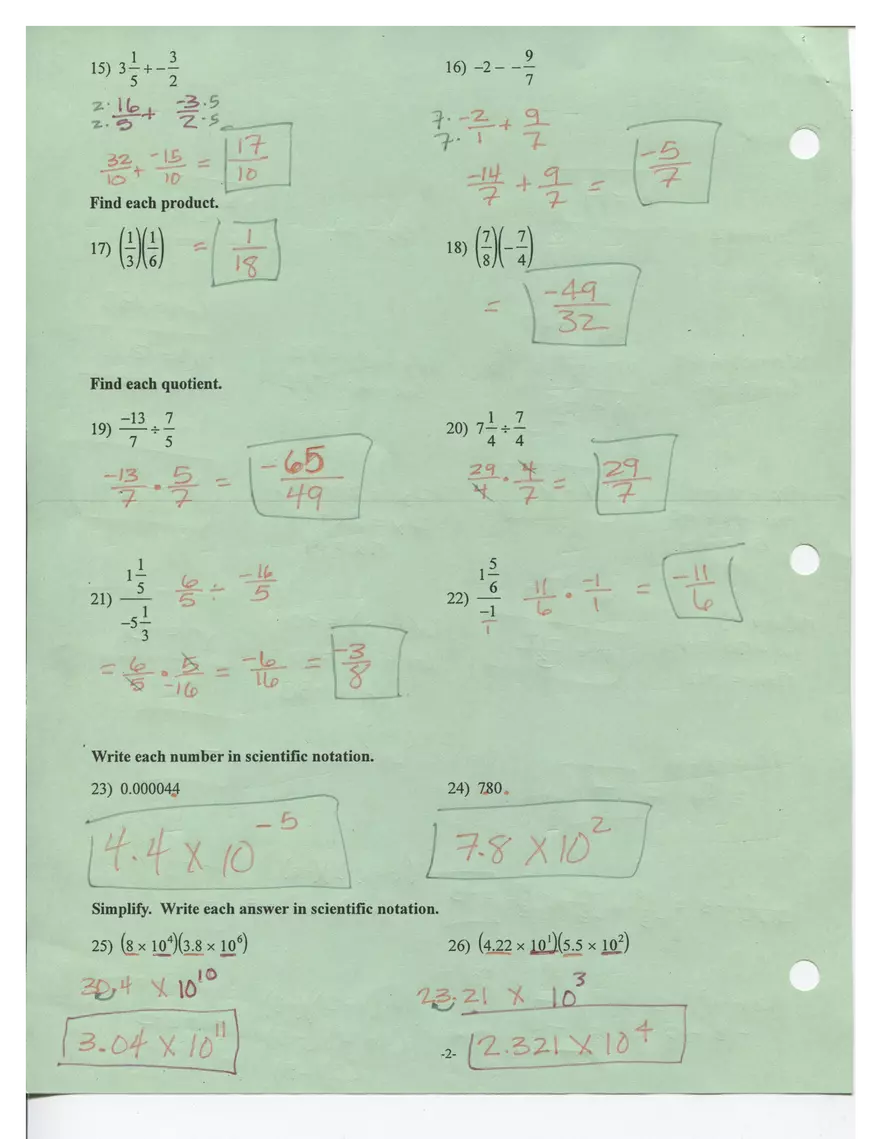 15) 3 1/5 + - 3/2
2· 16/5 + -3/2 ·5
2· ·5
32/10 + -15/10 = 17/10
16) -2 - - 9/7
7· -2/1 + 9/7
7·
-14/7 + 9/7 = -5/7
Find each product.
17) (1/3)(1/6) = 1/18
18) (7/8)(- 7/4)
= -49/32
Find each quotient.
19) -13/7 ÷ 7/5
-13/7 · 5/7 = -65/49
20) 7 1/4 ÷ 7/4
29/4 · 4/7 = 29/7
21) 1 1/5 / -5 1/3 6/5 ÷ -16/5
= 6/5 · 5/-16 = -6/16 = -3/8
22) 1 5/6 / -1/1 11/6 · -1/1 = -11/6
Write each number in scientific notation.
23) 0.000044
4.4 X 10^-5
24) 780.
7.8 X 10^2
Simplify. Write each answer in scientific notation.
25) (8 x 10^4)(3.8 x 10^6)
30.4 X 10^10
3.04 X 10^11
26) (4.22 x 10^1)(5.5 x 10^2)
23.21 X 10^3
2.321 X 10^4
-2-